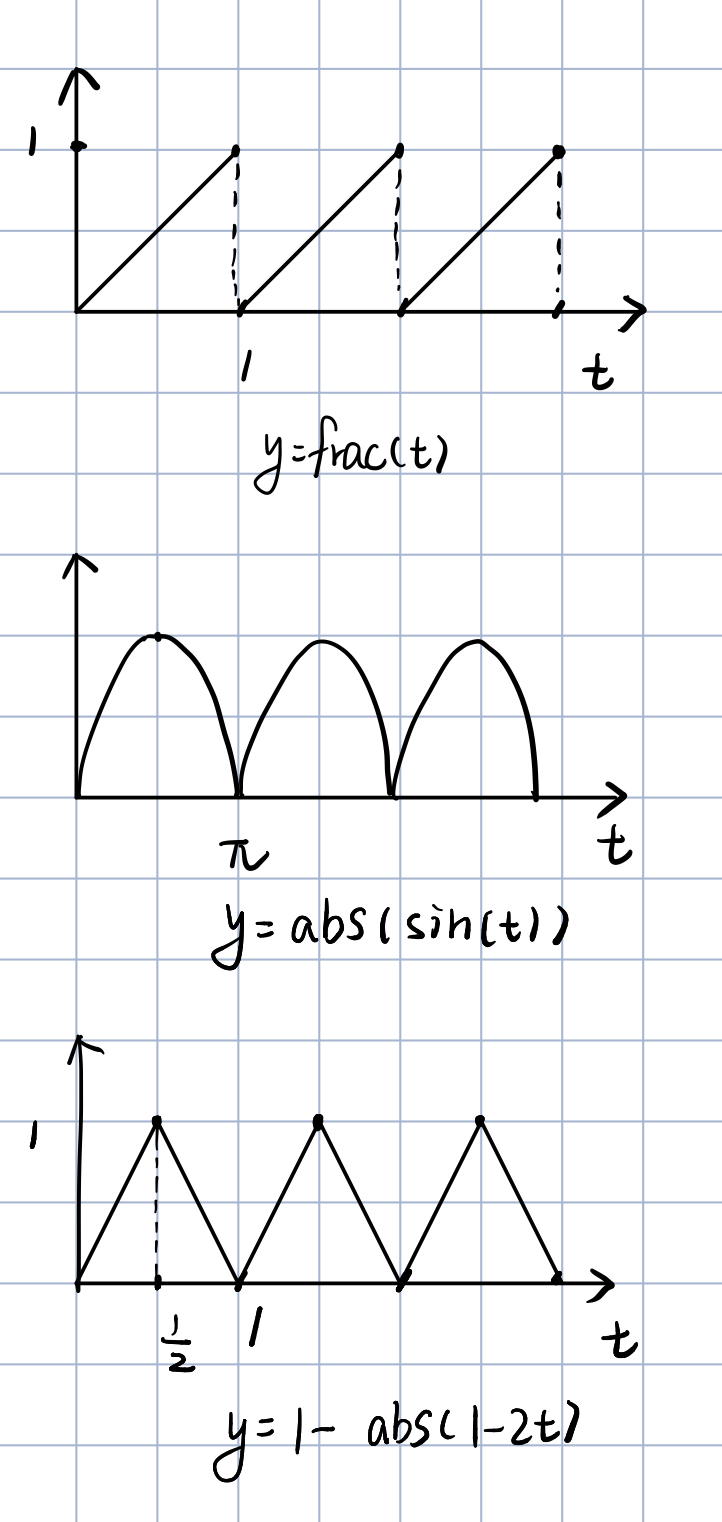 1
1
t
y=frac(t)
π
t
y=abs(sin(t))
1
1/2 1
t
y=1-abs(1-2t)